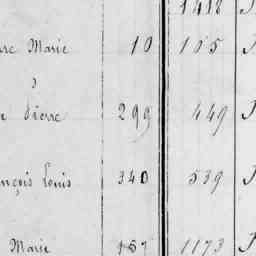 1418
Marie 10 105
Pierre 299 449
Louis 340 539
Marie 1173